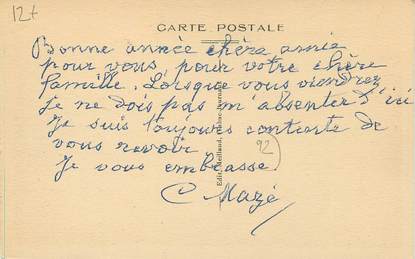 12t
CARTE POSTALE
Bonne année chère amie
pour vous, pour votre chère
famille. Lorsque vous viendrez
je ne dois pas m'absenter d'ici
Je suis toujours contente de
vous revoir
92
Je vous embrasse
C Mazé